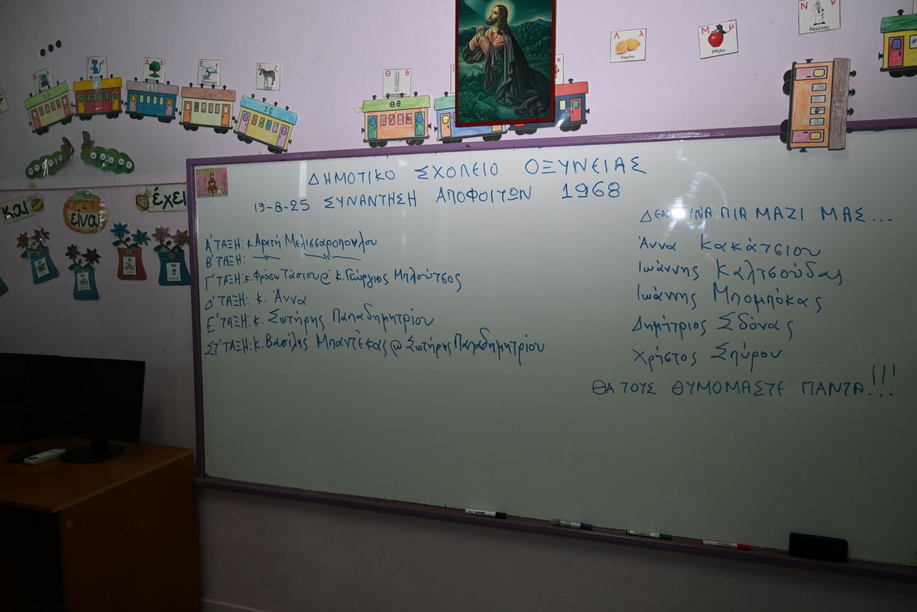 ΔΗΜΟΤΙΚΟ ΣΧΟΛΕΙΟ ΟΞΥΝΕΙΑΣ
19-8-25 ΣΥΝΑΝΤΗΣΗ ΑΠΟΦΟΙΤΩΝ 1968
Α΄ ΤΑΞΗ: κ. Αρετή Μελισσαροπούλου
Β΄ ΤΑΞΗ:
Γ΄ ΤΑΞΗ: κ. Φρόσω Τάσιου @ κ. Γεώργιος Μπλούτσος
Δ΄ ΤΑΞΗ: κ. Άννα
Ε΄ ΤΑΞΗ: κ. Σωτήρης Παπαδημητρίου
ΣΤ΄ ΤΑΞΗ: κ. Βασίλης Μπαντέκας @ Σωτήρης Παπαδημητρίου
ΔΕΝ ΠΙΑ ΜΑΖΙ ΜΑΣ...
Άννα Κακάτσιου
Ιωάννης Καλτσούδας
Ιωάννης Μπομπόκας
Δημήτριος Σδόνας
Χρήστος Σπύρου
ΘΑ ΤΟΥΣ ΘΥΜΟΜΑΣΤΕ ΠΑΝΤΑ!!!
και
είναι
έχει
Θ θ
Λ λ
Λεμόνι
Μ μ
Μήλο
Ν ν
Ναύτης